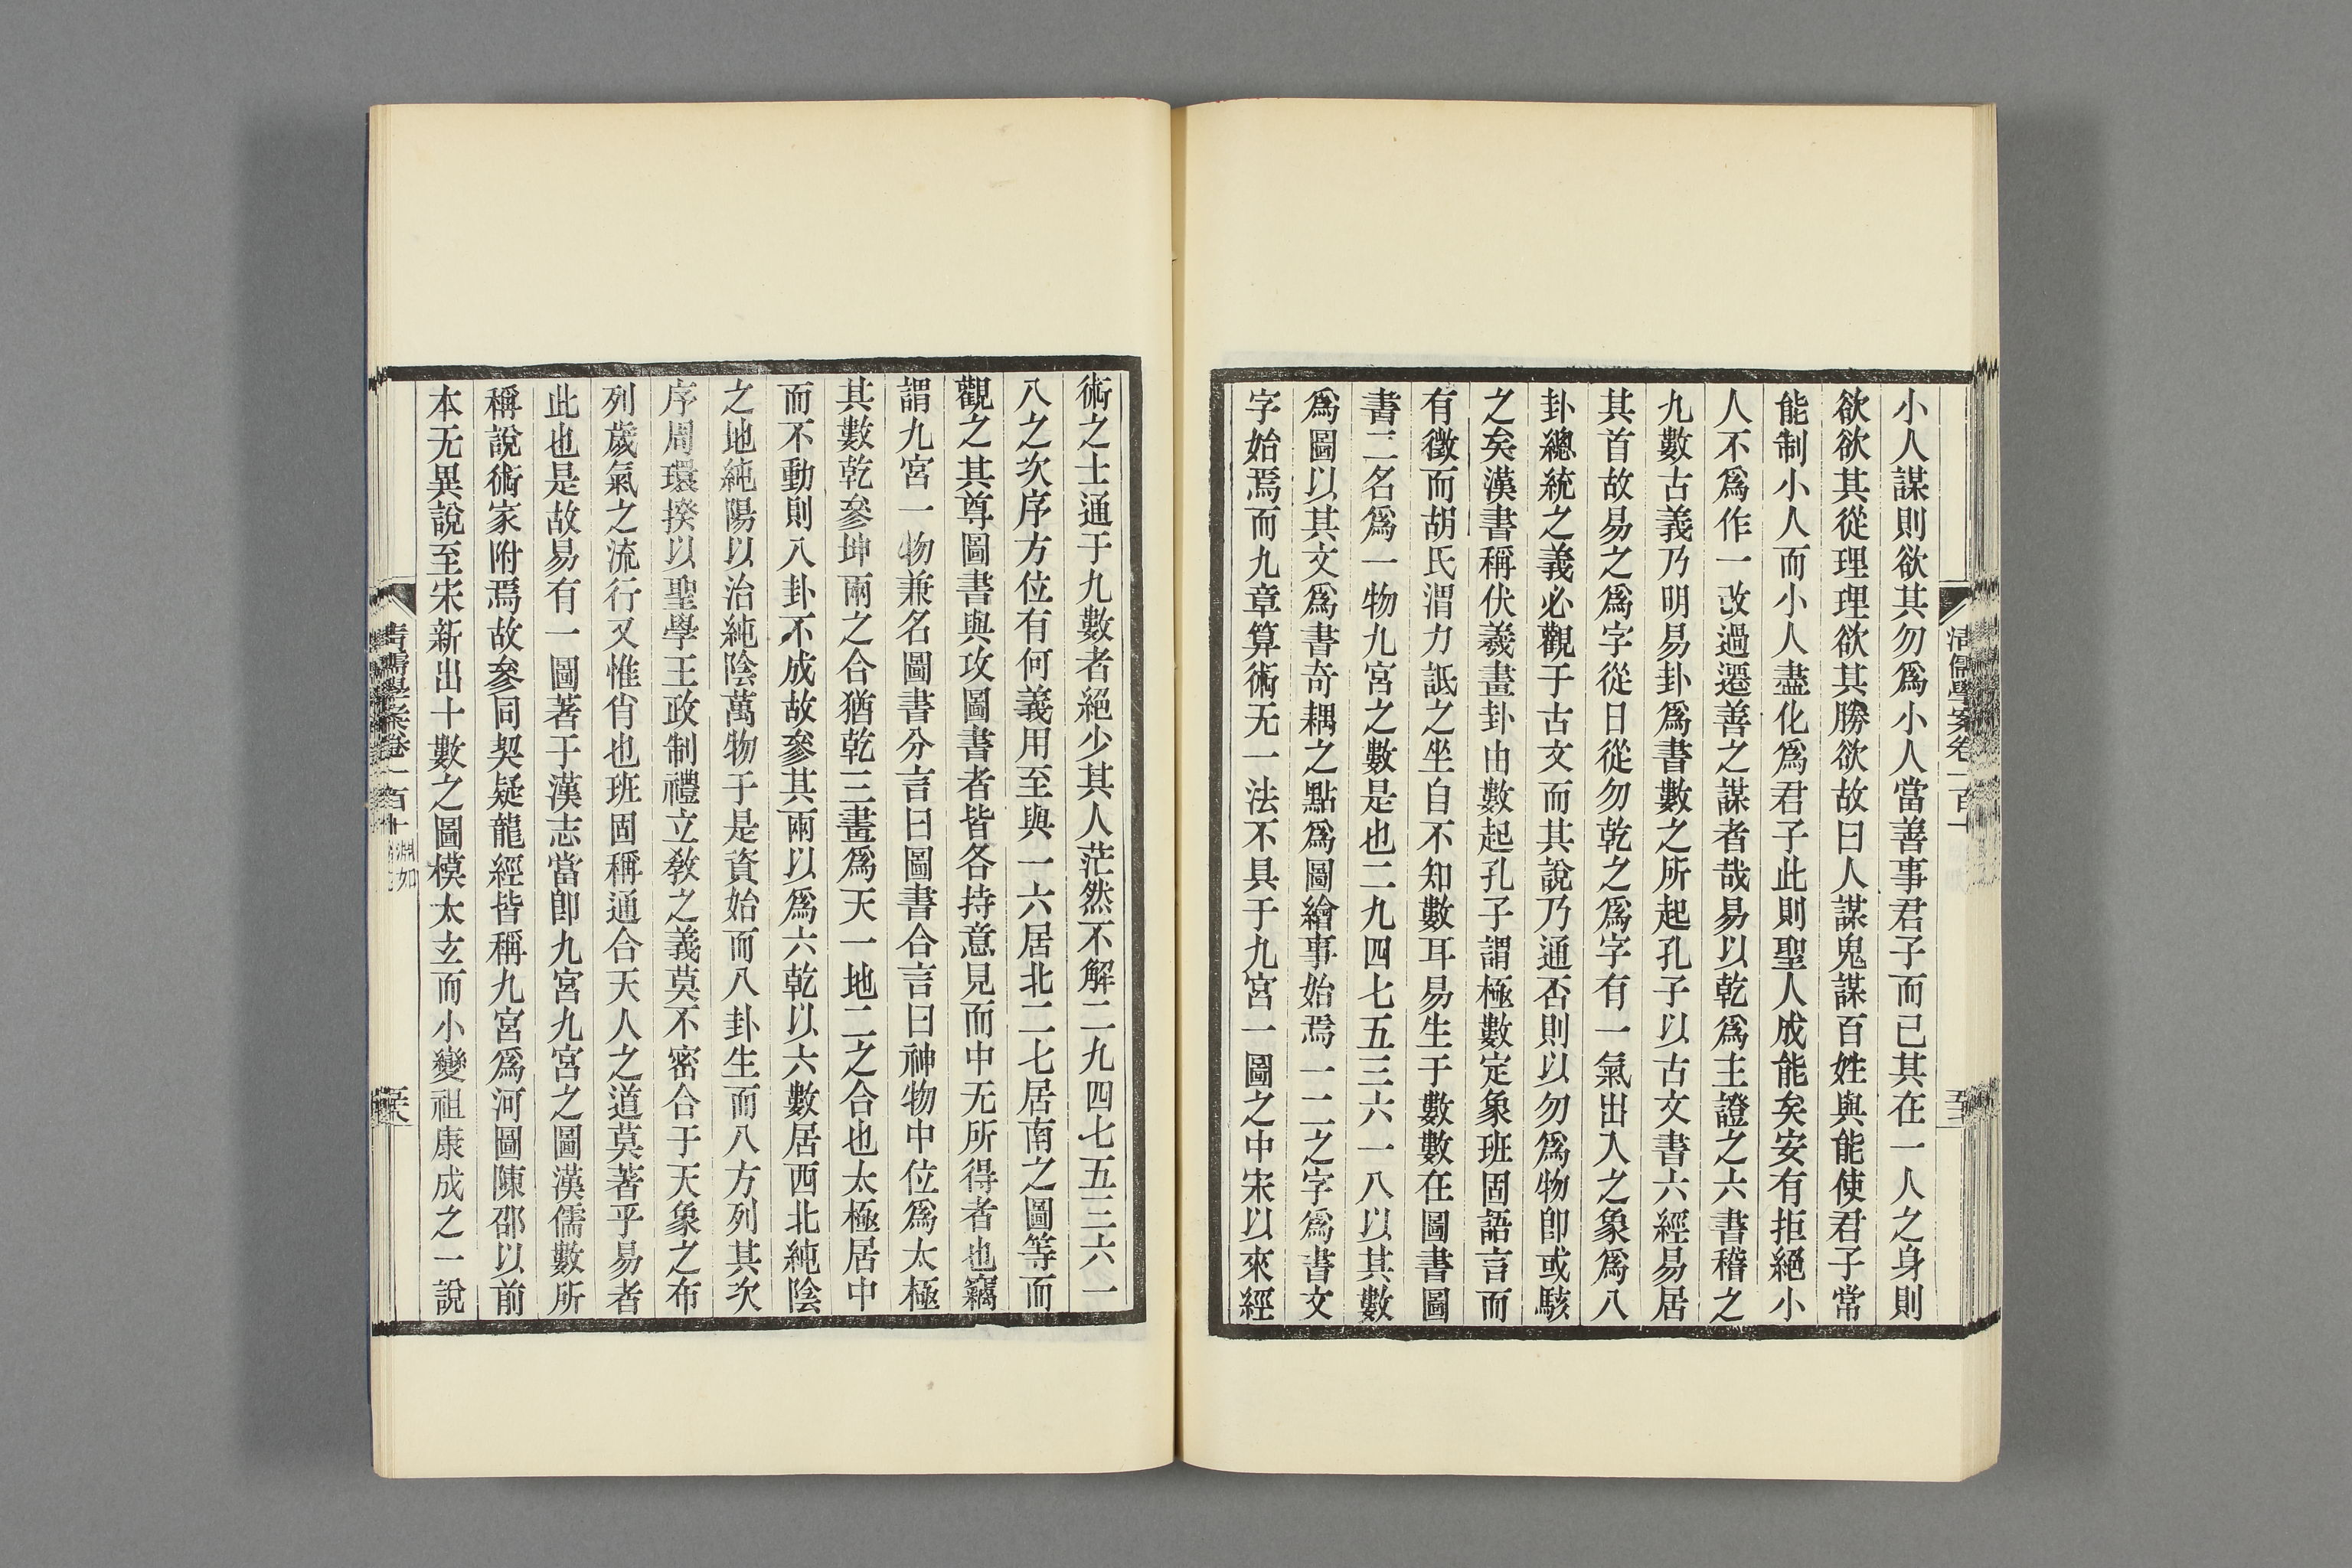 小人謀則欲其勿爲小人當善事君子而已其在一人之身則
欲欲其從理理欲其勝欲故曰人謀鬼謀百姓與能使君子常
能制小人而小人盡化爲君子此則聖人成能矣安有拒絕小
人不爲作一改過遷善之謀者哉易以乾爲主證之六書稽之
九數古義乃明易卦爲書數之所起孔子以古文書六經易居
其首故易之爲字從日從勿乾之爲字有一氣出入之象爲八
卦總統之義必觀于古文而其說乃通否則以勿爲物卽或駭
之矣漢書稱伏羲畫卦由數起孔子謂極數定象班固語言而
有徵而胡氏渭力詆之坐自不知數耳易生于數數在圖書圖
書二名爲一物九宮之數是也二九四七五三六一八以其數
爲圖以其文爲書奇耦之點爲圖繪事始焉一二之字爲書文
字始焉而九章算術无一法不具于九宮一圖之中宋以來經
清儒學案卷一百十
術之士通于九數者絕少其人茫然不解二九四七五三六一
八之次序方位有何義用至與一六居北二七居南之圖等而
觀之其尊圖書與攻圖書者皆各持意見而中无所得者也竊
謂九宮一物兼名圖書分言曰圖書合言曰神物中位爲太極
其數乾參坤兩之合猶乾三畫爲天一地二之合也太極居中
而不動則八卦不成故參其兩以爲六乾以六數居西北純陰
之地純陽以治純陰萬物于是資始而八卦生而八方列其次
序周環揆以聖學王政制禮立敎之義莫不密合于天象之布
列歲氣之流行又惟肖也班固稱通合天人之道莫著乎易者
此也是故易有一圖著于漢志當卽九宮九宮之圖漢儒數所
稱說術家附焉故參同契疑龍經皆稱九宮爲河圖陳邵以前
本无異說至宋新出十數之圖模太玄而小變祖康成之一說
清儒學案卷一百十